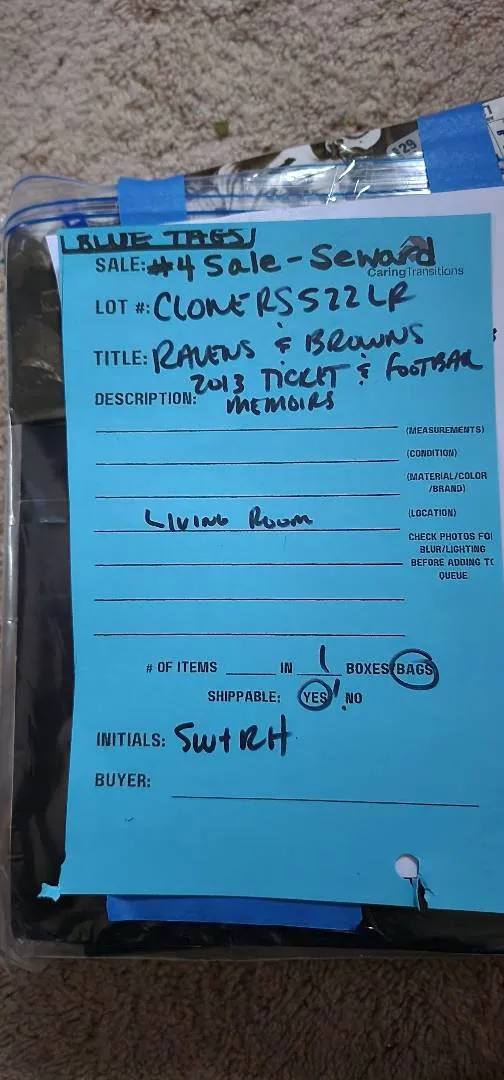 BLUE TAGS
SALE: #4 Sale - Seward
CaringTransitions
LOT #: CLONERS522LR
TITLE: RAVENS & BROWNS
2013 TICKET & FOOTBAL
DESCRIPTION: MEMOIRS
(MEASUREMENTS)
(CONDITION)
(MATERIAL/COLOR
/BRAND)
LIVING ROOM (LOCATION)
CHECK PHOTOS FO
BLUR/LIGHTING
BEFORE ADDING TO
QUEUE
# OF ITEMS IN 1 BOXES/BAGS
SHIPPABLE: YES / NO
INITIALS: SW+RH
BUYER:
$29